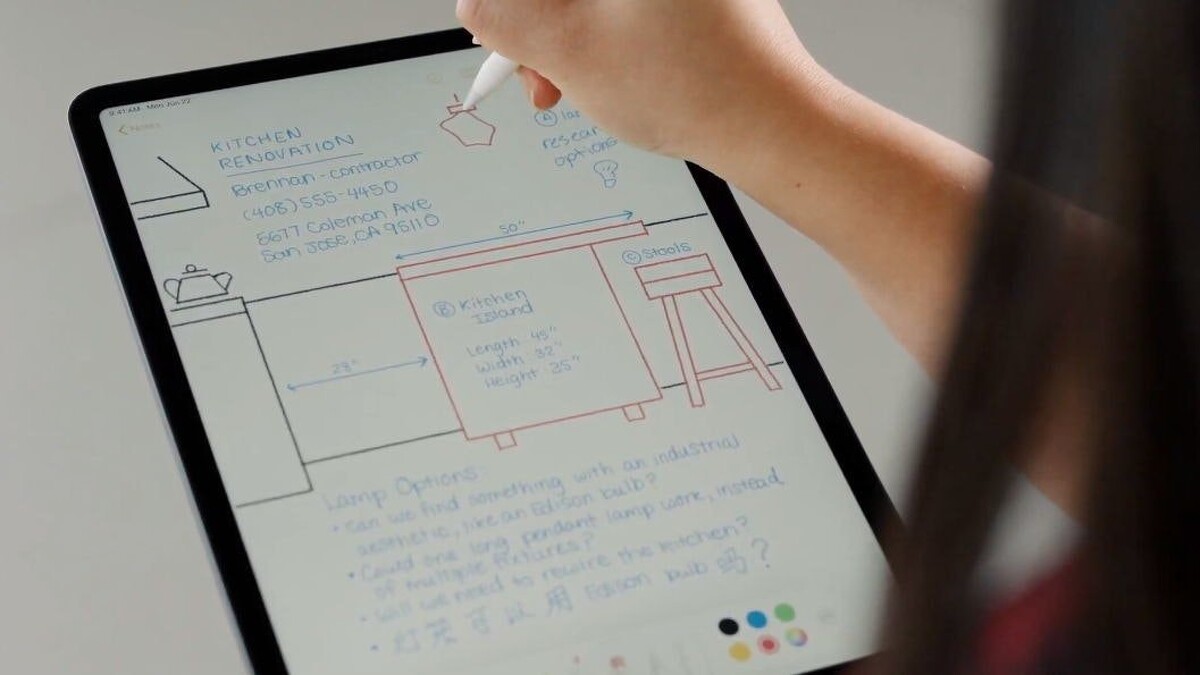 9:41 AM Mon Jun 22
Notes
KITCHEN
RENOVATION
Brennan - contractor
(408) 555-4450
5677 Coleman Ave
San Jose, CA 95110
Ⓐ
options
50"
Ⓒ Stools
Ⓑ Kitchen
Island
Length 45"
Width 32"
Height 35"
Lamp Options:
• Can we find something with an industrial
aesthetic, like an Edison bulb?
• Could one long pendant lamp work, instead
of multiple fixtures?
• Will we need to rewire the kitchen?
• 灯 可以用 Edison bulb 吗?